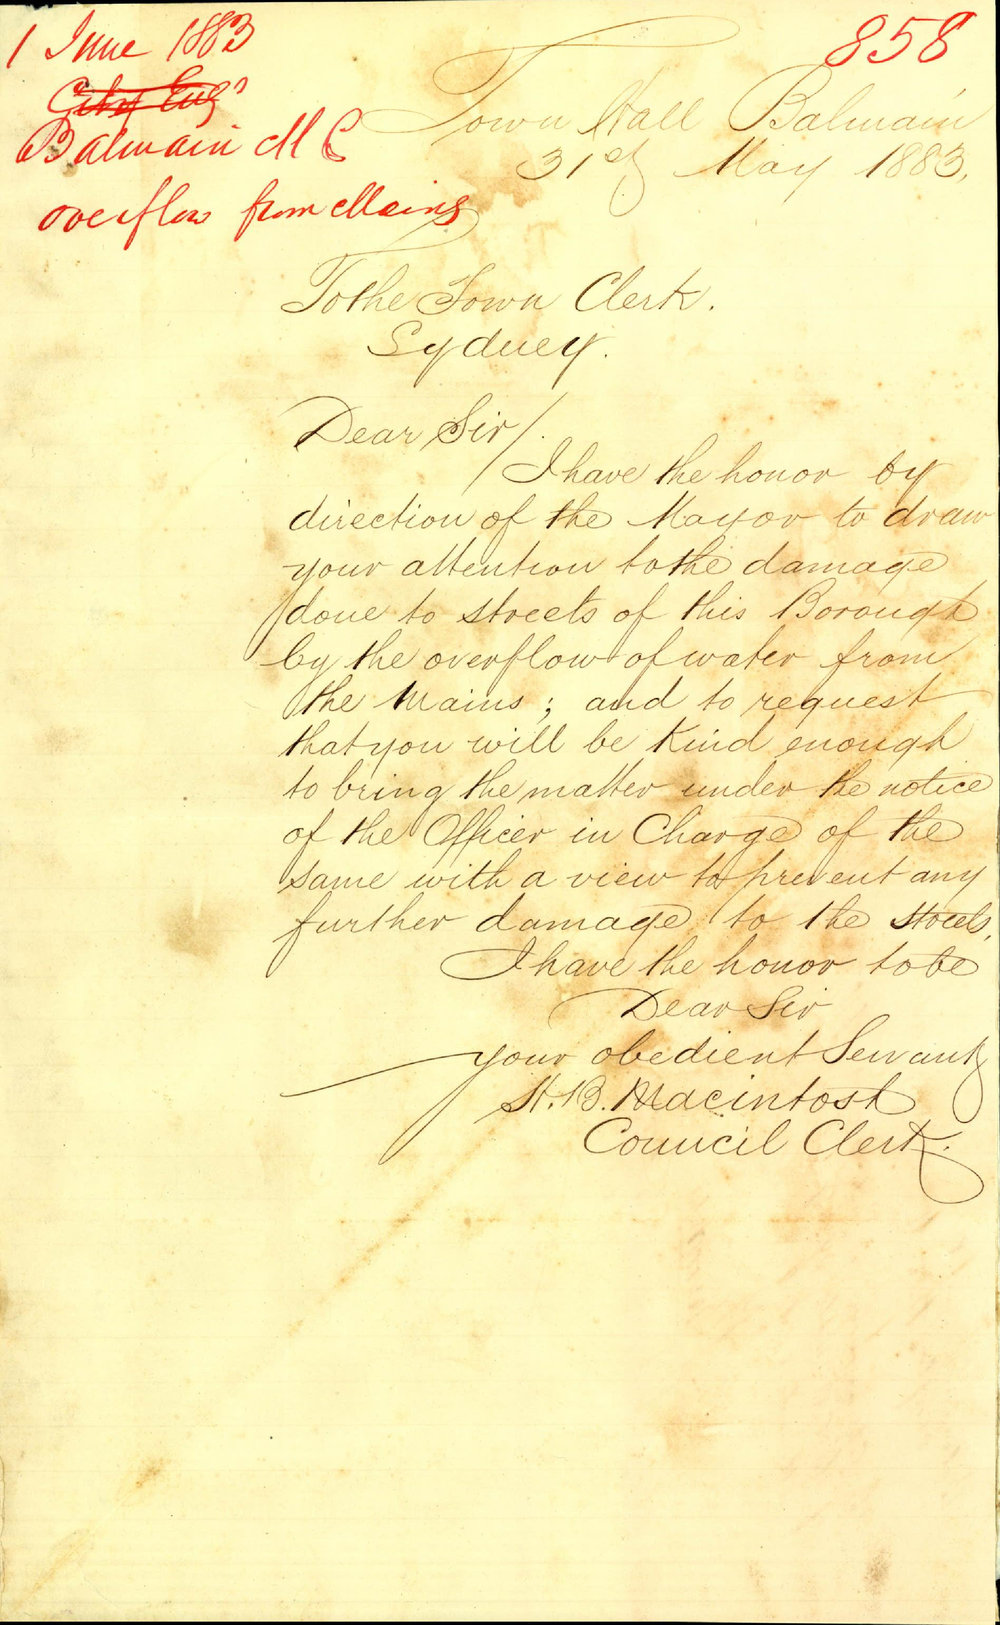 1 June 1883
858
City Eng.r
Balmain M C
overflow from Mains
Town Hall Balmain
31st May 1883.
To the Town Clerk.
Sydney.
Dear Sir/.
I have the honor by
direction of the Mayor to draw
your attention to the damage
done to streets of this Borough
by the overflow of water from
the Mains ; and to request
that you will be Kind enough
to bring the matter under the notice
of the Officer in Charge of the
same with a view to prevent any
further damage to the streets.
I have the honor to be
Dear Sir
your obedient Servant
H. B. Macintosh
Council Clerk.